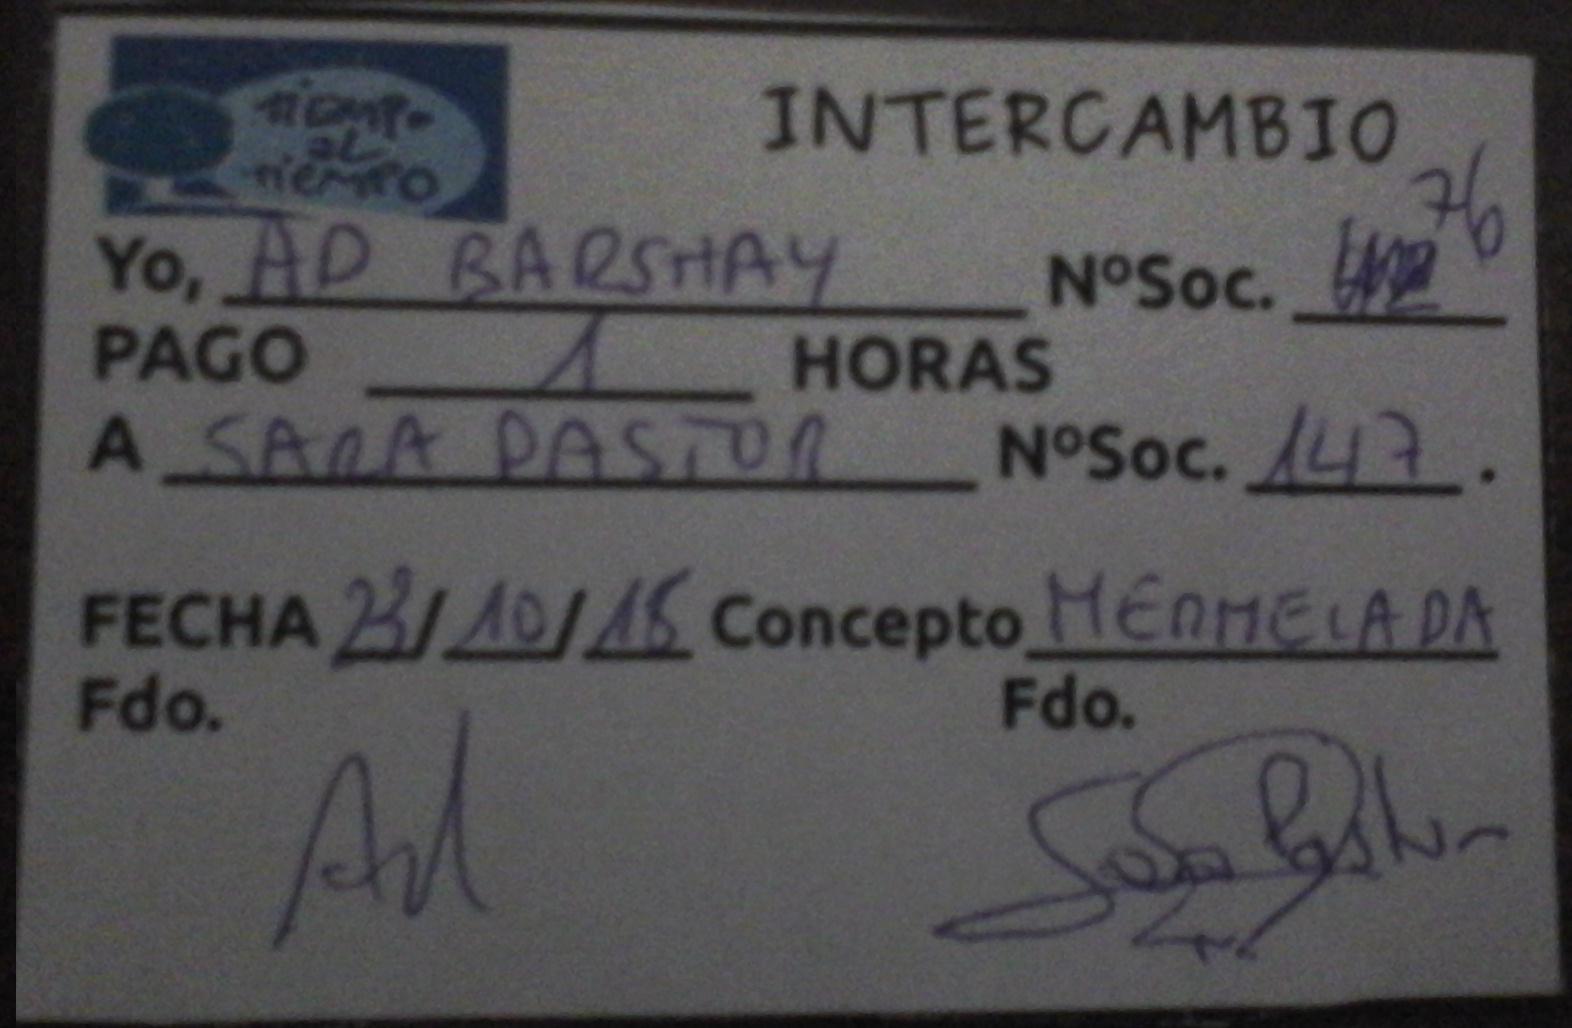 TIEMPO
AL
TIEMPO
INTERCAMBIO
Yo, AD BARSHAY NºSoc. 76
PAGO 1 HORAS
A SARA PASTOR NºSoc. 147.
FECHA 23/10/15 Concepto MERMELADA
Fdo. Fdo.
Ad Sara Pastor